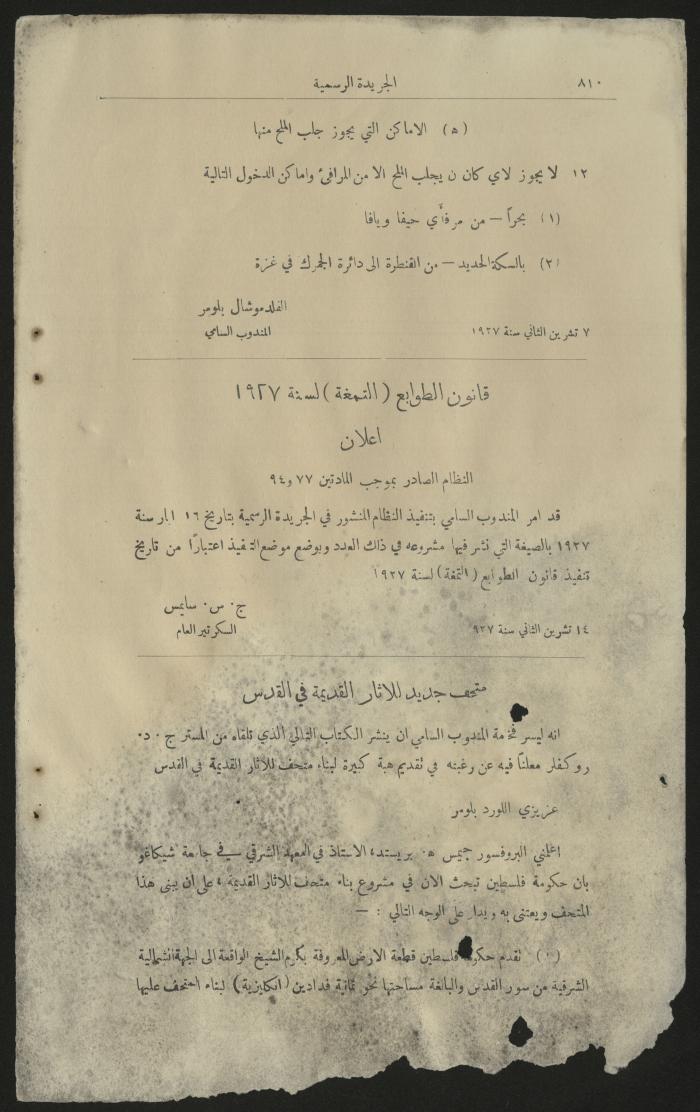 ٨١٠
الجريدة الرسمية
(ه) الاماكن التي يجوز جلب الملح منها
١٢ لا يجوز لاي كان ن يجلب الملح الا من المرافئ واماكن الدخول التالية
(١) بحراً — من مرفأي حيفا ويافا
(٢) بالسكة الحديد — من القنطرة الى دائرة الجمرك في غزة
الفلدموشال بلومر
٧ تشرين الثاني سنة ١٩٢٧
المندوب السامي
قانون الطوابع (التمغة) لسنة ١٩٢٧
اعلان
النظام الصادر بموجب المادتين ٧٧ و٩٤
قد امر المندوب السامي بتنفيذ النظام المنشور في الجريدة الرسمية بتاريخ ١٦ ايار سنة
١٩٢٧ بالصيغة التي نشر فيها مشروعه في ذاك العدد وبوضع موضع التنفيذ اعتبارًا من تاريخ
تنفيذ قانون الطوابع (التمغة) لسنة ١٩٢٧
ج. س. سايمس
١٤ تشرين الثاني سنة ٩٢٧
السكرتير العام
متحف جديد للاثار القديمة في القدس
انه ليسر فخمة المندوب السامي ان ينشر الكتاب التالي الذي تلقاه من المستر ج. د.
روكفلر معلنًا فيه عن رغبته في تقديم هبة كبيرة لبناء متحف للاثار القديمة في القدس
عزيزي اللورد بلومر
اعلمني البروفسور جيمس ه. بريستد، الاستاذ في المعهد الشرقي في جامعة شيكاغو
بان حكومة فلسطين تبحث الان في مشروع بناء متحف للاثار القديمة، على ان يبنى هذا
المتحف ويعتنى به ويدار على الوجه التالي : —
(١) تقدم حكومة فلسطين قطعة الارض المعروفة بكرم الشيخ الواقعة الى الجهة الشمالية
الشرقية من سور القدس والبالغة مساحتها نحو ثمانية فدادين (انكليزية) لبناء المتحف عليها